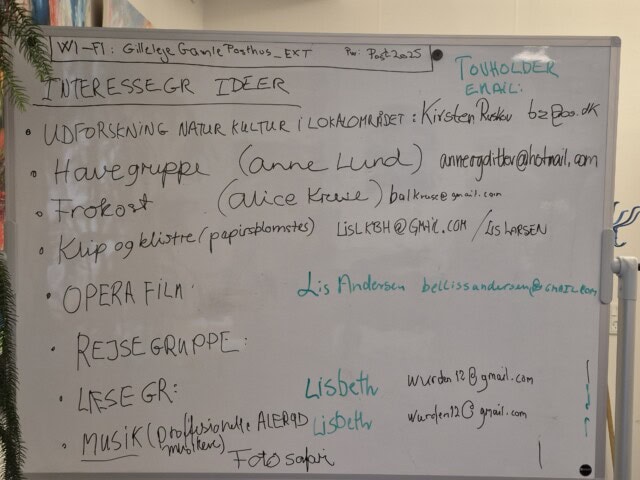 WI-FI: Gilleleje Gamle Posthus_EXT Pw: Post2025
INTERESSEGR IDEER
TOVHOLDER
EMAIL:
• UDFORSKNING NATUR KULTUR I LOKALOMRÅDET: Kirsten
• Havegruppe (anne Lund)
• Frokost (alice Kruse) balkruse@gmail.com
• Klip og klistre (papirsblomster) LISLKBH@GMAIL.COM / LIS LARSEN
• OPERA FILM: Lis Andersen bellissandersen@GMAIL.COM
• REJSEGRUPPE:
• LÆSEGR: Lisbeth wurden12@gmail.com
• MUSIK (Proffesionelle Lisbeth wurden12@gmail.com
musikere)
Fotosafari